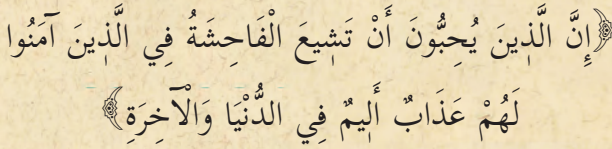 ﴿إِنَّ الَّذِينَ يُحِبُّونَ أَنْ تَشِيعَ الْفَاحِشَةُ فِي الَّذِينَ آمَنُوا
لَهُمْ عَذَابٌ أَلِيمٌ فِي الدُّنْيَا وَالْآخِرَةِ﴾